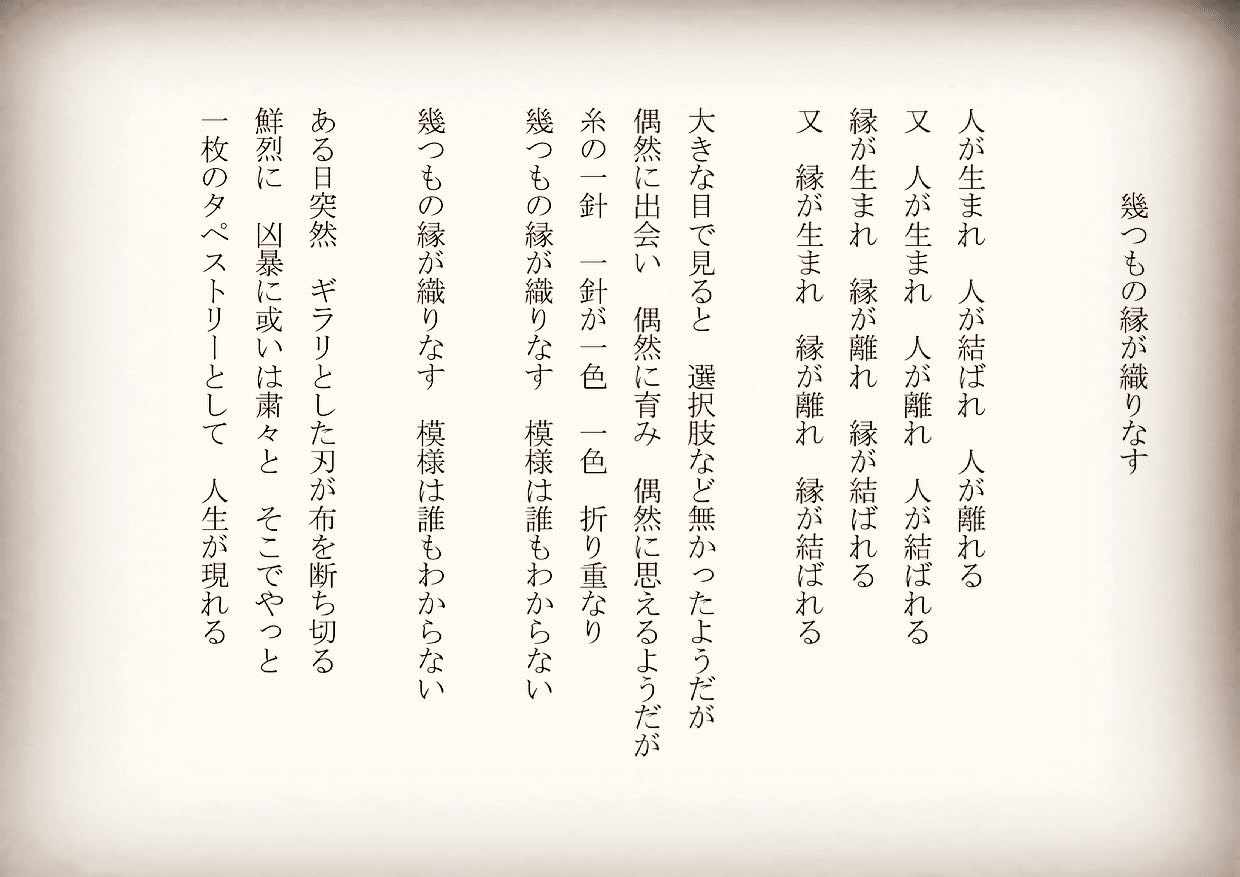 幾つもの縁が織りなす
人が生まれ　人が結ばれ　人が離れる
又　人が生まれ　人が離れ　人が結ばれる
縁が生まれ　縁が離れ　縁が結ばれる
又　縁が生まれ　縁が離れ　縁が結ばれる
大きな目で見ると　選択肢など無かったようだが
偶然に出会い　偶然に育み　偶然に思えるようだが
糸の一針　一針が一色　一色　折り重なり
幾つもの縁が織りなす　模様は誰もわからない
幾つもの縁が織りなす　模様は誰もわからない
ある日突然　ギラリとした刃が布を断ち切る
鮮烈に　凶暴に或いは粛々と　そこでやっと
一枚のタペストリーとして　人生が現れる